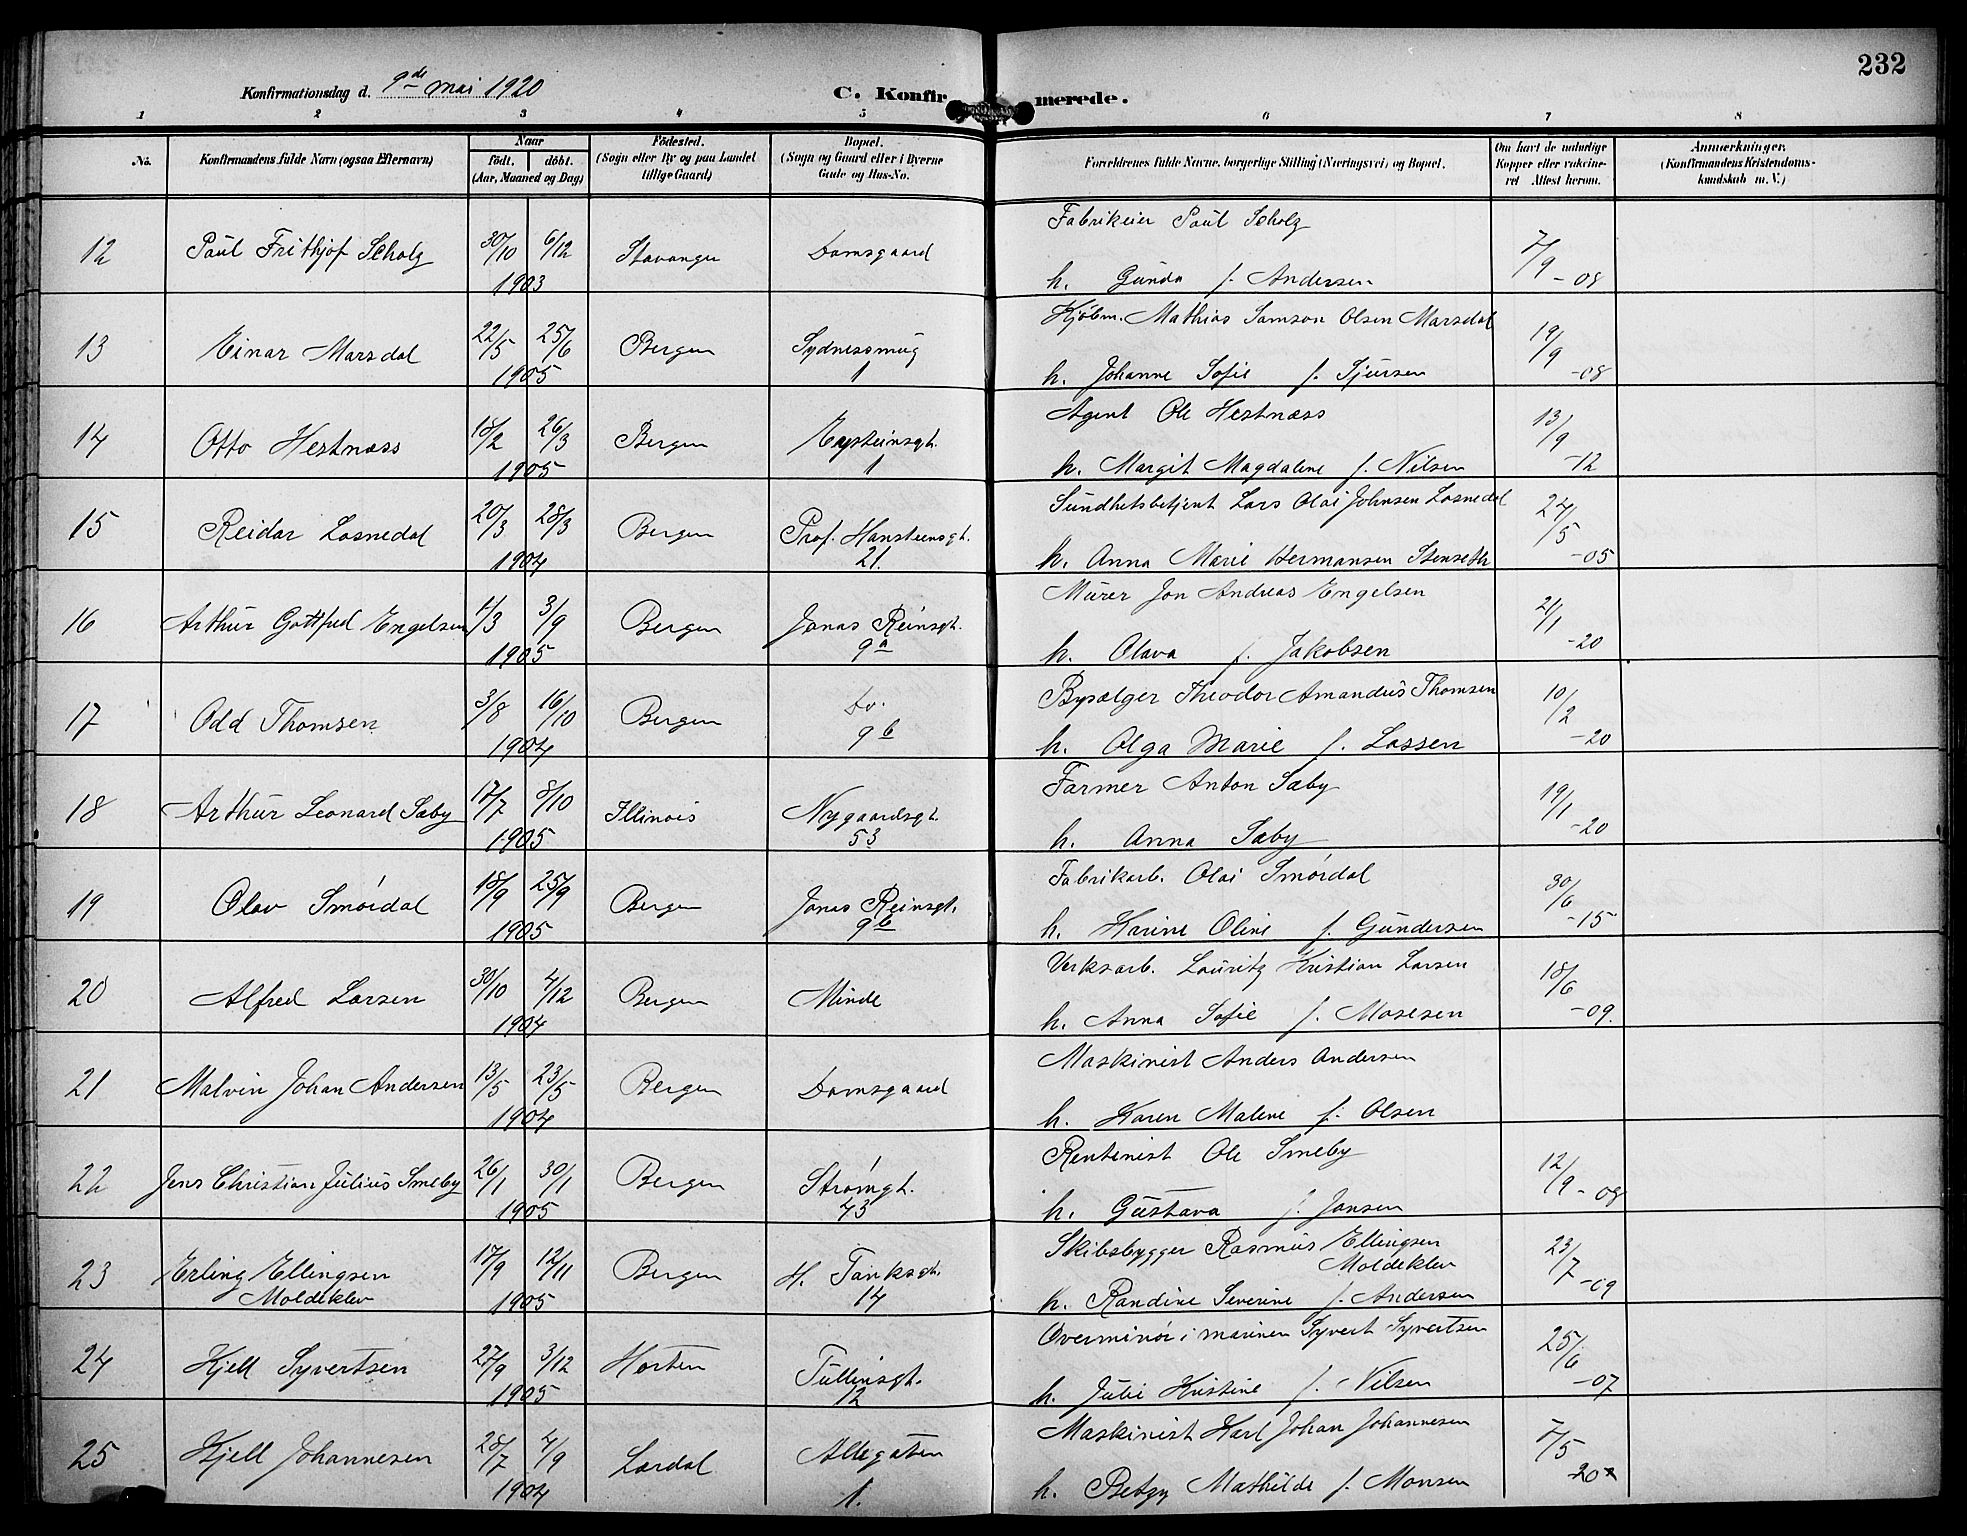 232
Konfirmationsdag d. 9de mai 1920
C. Konfirmerede.
1 2 3 4 5 6 7 8
No. Konfirmandens fulde Navn (ogsaa Efternavn) Naar født. døbt. (Aar, Maaned og Dag) Fødested. (Sogn eller By og paa Landet tillige Gaard) Bopæl. (Sogn og Gaard eller i Byerne Gade og Hus-No. Forældrenes fulde Navne, borgerlige Stilling (Næringsvei) og Bopæl. Om havt de naturlige Kopper eller vakcineret Attest herom. Anmerkninger. (Konfirmandens Kristendomskundskab m. V.)
Fabrikeier Paul Scholz
12 Paul Frithjof Scholz 30/10 6/12 Stavanger Damsgaard 7/9
1903 h. Gunda f. Andersen -08
Kjøbm. Mathias Samson Olsen Marsdal
13 Einar Marsdal 22/5 25/6 Bergen Sydnessmug 19/9
1905 1 h. Johanne Sofie f. Sjursen -08
Agent Ole Hestnæss
14 Otto Hestnæss 18/2 26/3 Bergen Eysteinsgt. 13/9
1905 1 h. Margit Magdalene f. Nilsen -12
Sundhetsbetjent Lars Olai Johnsen Losnedal
15 Reidar Losnedal 20/3 28/3 Bergen Prof. Hansteensgt. 24/5
1904 21. h. Anna Marie Hermansen Stenseth -05
Murer Jon Andreas Engelsen
16 Arthur Gottfred Engelsen 1/3 3/9 Bergen Jonas Reinsgt. 21/1
1905 9a h. Olava f. Jakobsen -20
Bysælger Theodor Amandus Thomsen
17 Odd Thomsen 3/8 16/10 Bergen do. 10/2
1904 9b h. Olga Marie f. Lassen -20
Farmer Anton Sæby
18 Arthur Leonard Sæby 17/7 8/10 Illinois Nygaardsgt. 19/1
1905 53 h. Anna Sæby -20
Fabrikarb. Olai Smørdal
19 Olav Smørdal 18/9 25/9 Bergen Jonas Reinsgt. 30/6
1905 9b h. Karine Oline f. Gundersen -15
Verksarb. Lauritz Kristian Larsen
20 Alfred Larsen 30/10 4/12 Bergen Minde 18/6
1904 h. Anna Sofie f. Mosesen -09.
Maskinist Anders Andersen
21 Malvin Johan Andersen 13/5 23/5 Bergen Damsgaard
1904 h. Karen Malene f. Olsen
Rentenist Ole Smeby
22 Jens Christian Julius Smeby 26/1 30/1 Bergen Strømgt. 12/9
1905 43 h. Gustava f. Jansen -08
Skibsbygger Rasmus Ellingsen
Moldeklev
23 Erling Ellingsen 17/9 12/11 Bergen H. Tanksgt. 23/7
Moldeklev 1905 14 h. Randine Severine f. Andersen -09
Overminør i marinen Syvert Syvertsen
24 Kjell Syvertsen 27/9 3/12 Horten Tullinsgt. 25/6
1905 12 h. Julie Kristine f. Nilsen -07
Maskinist Karl Johan Johannesen
25 Kjell Johannesen 28/7 4/9 Lærdal Allegaten 7/5
1904 1. h. Betzy Mathilde f. Monsen -20